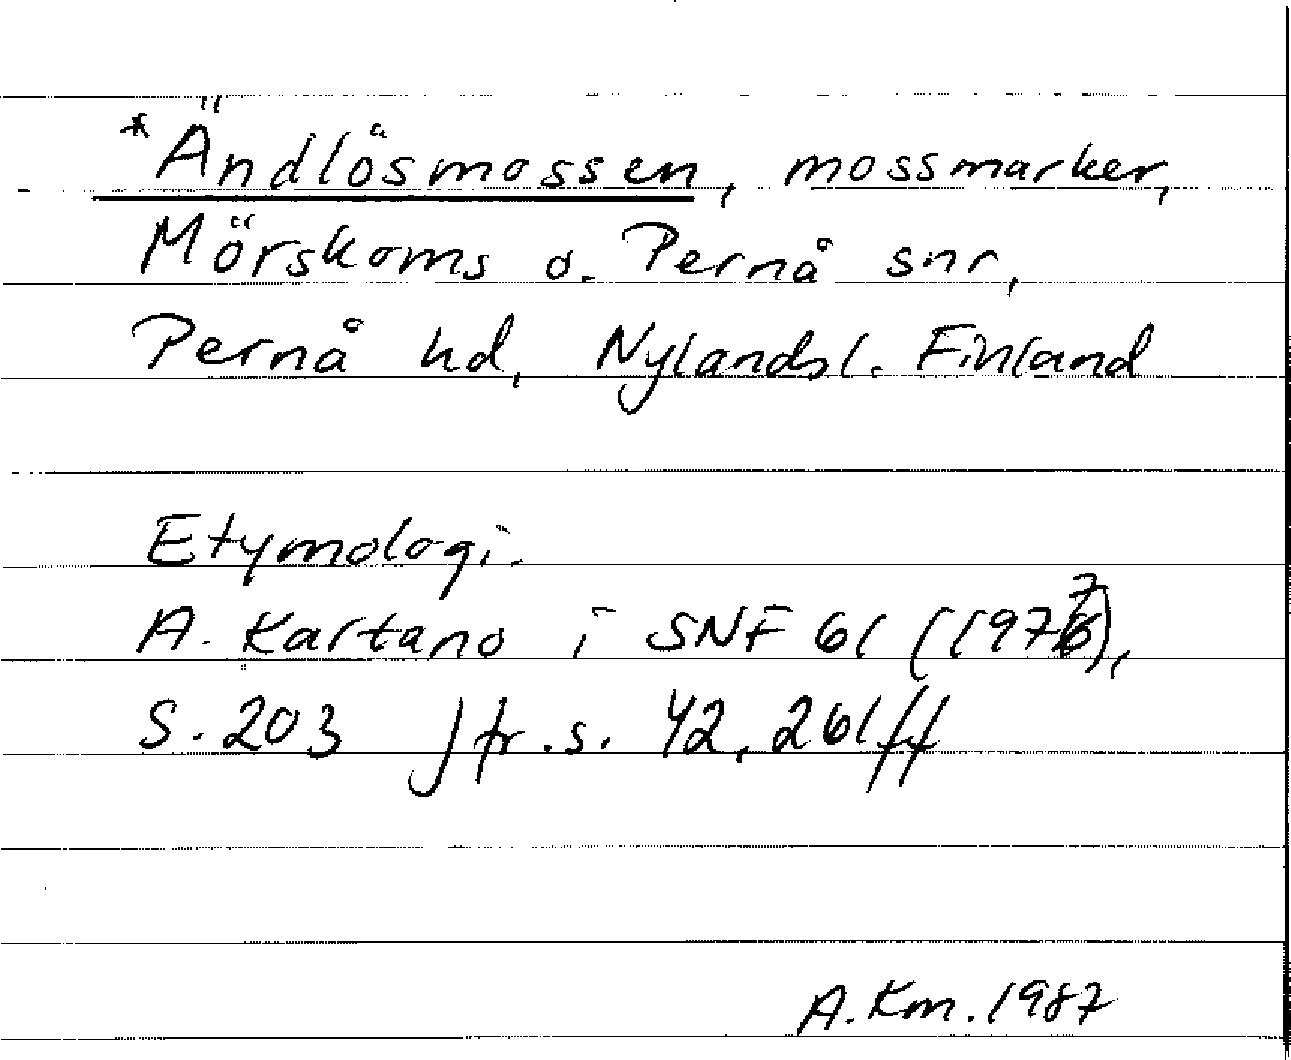 *Ändlösmossen, mossmarker,
Mörskoms o. Pernå snr,
Pernå hd, Nylandsl. Finland
Etymologi.
A. Kartano i SNF 61 (1977),
S. 203 Jfr. s. 42, 261ff
A. Km. 1987